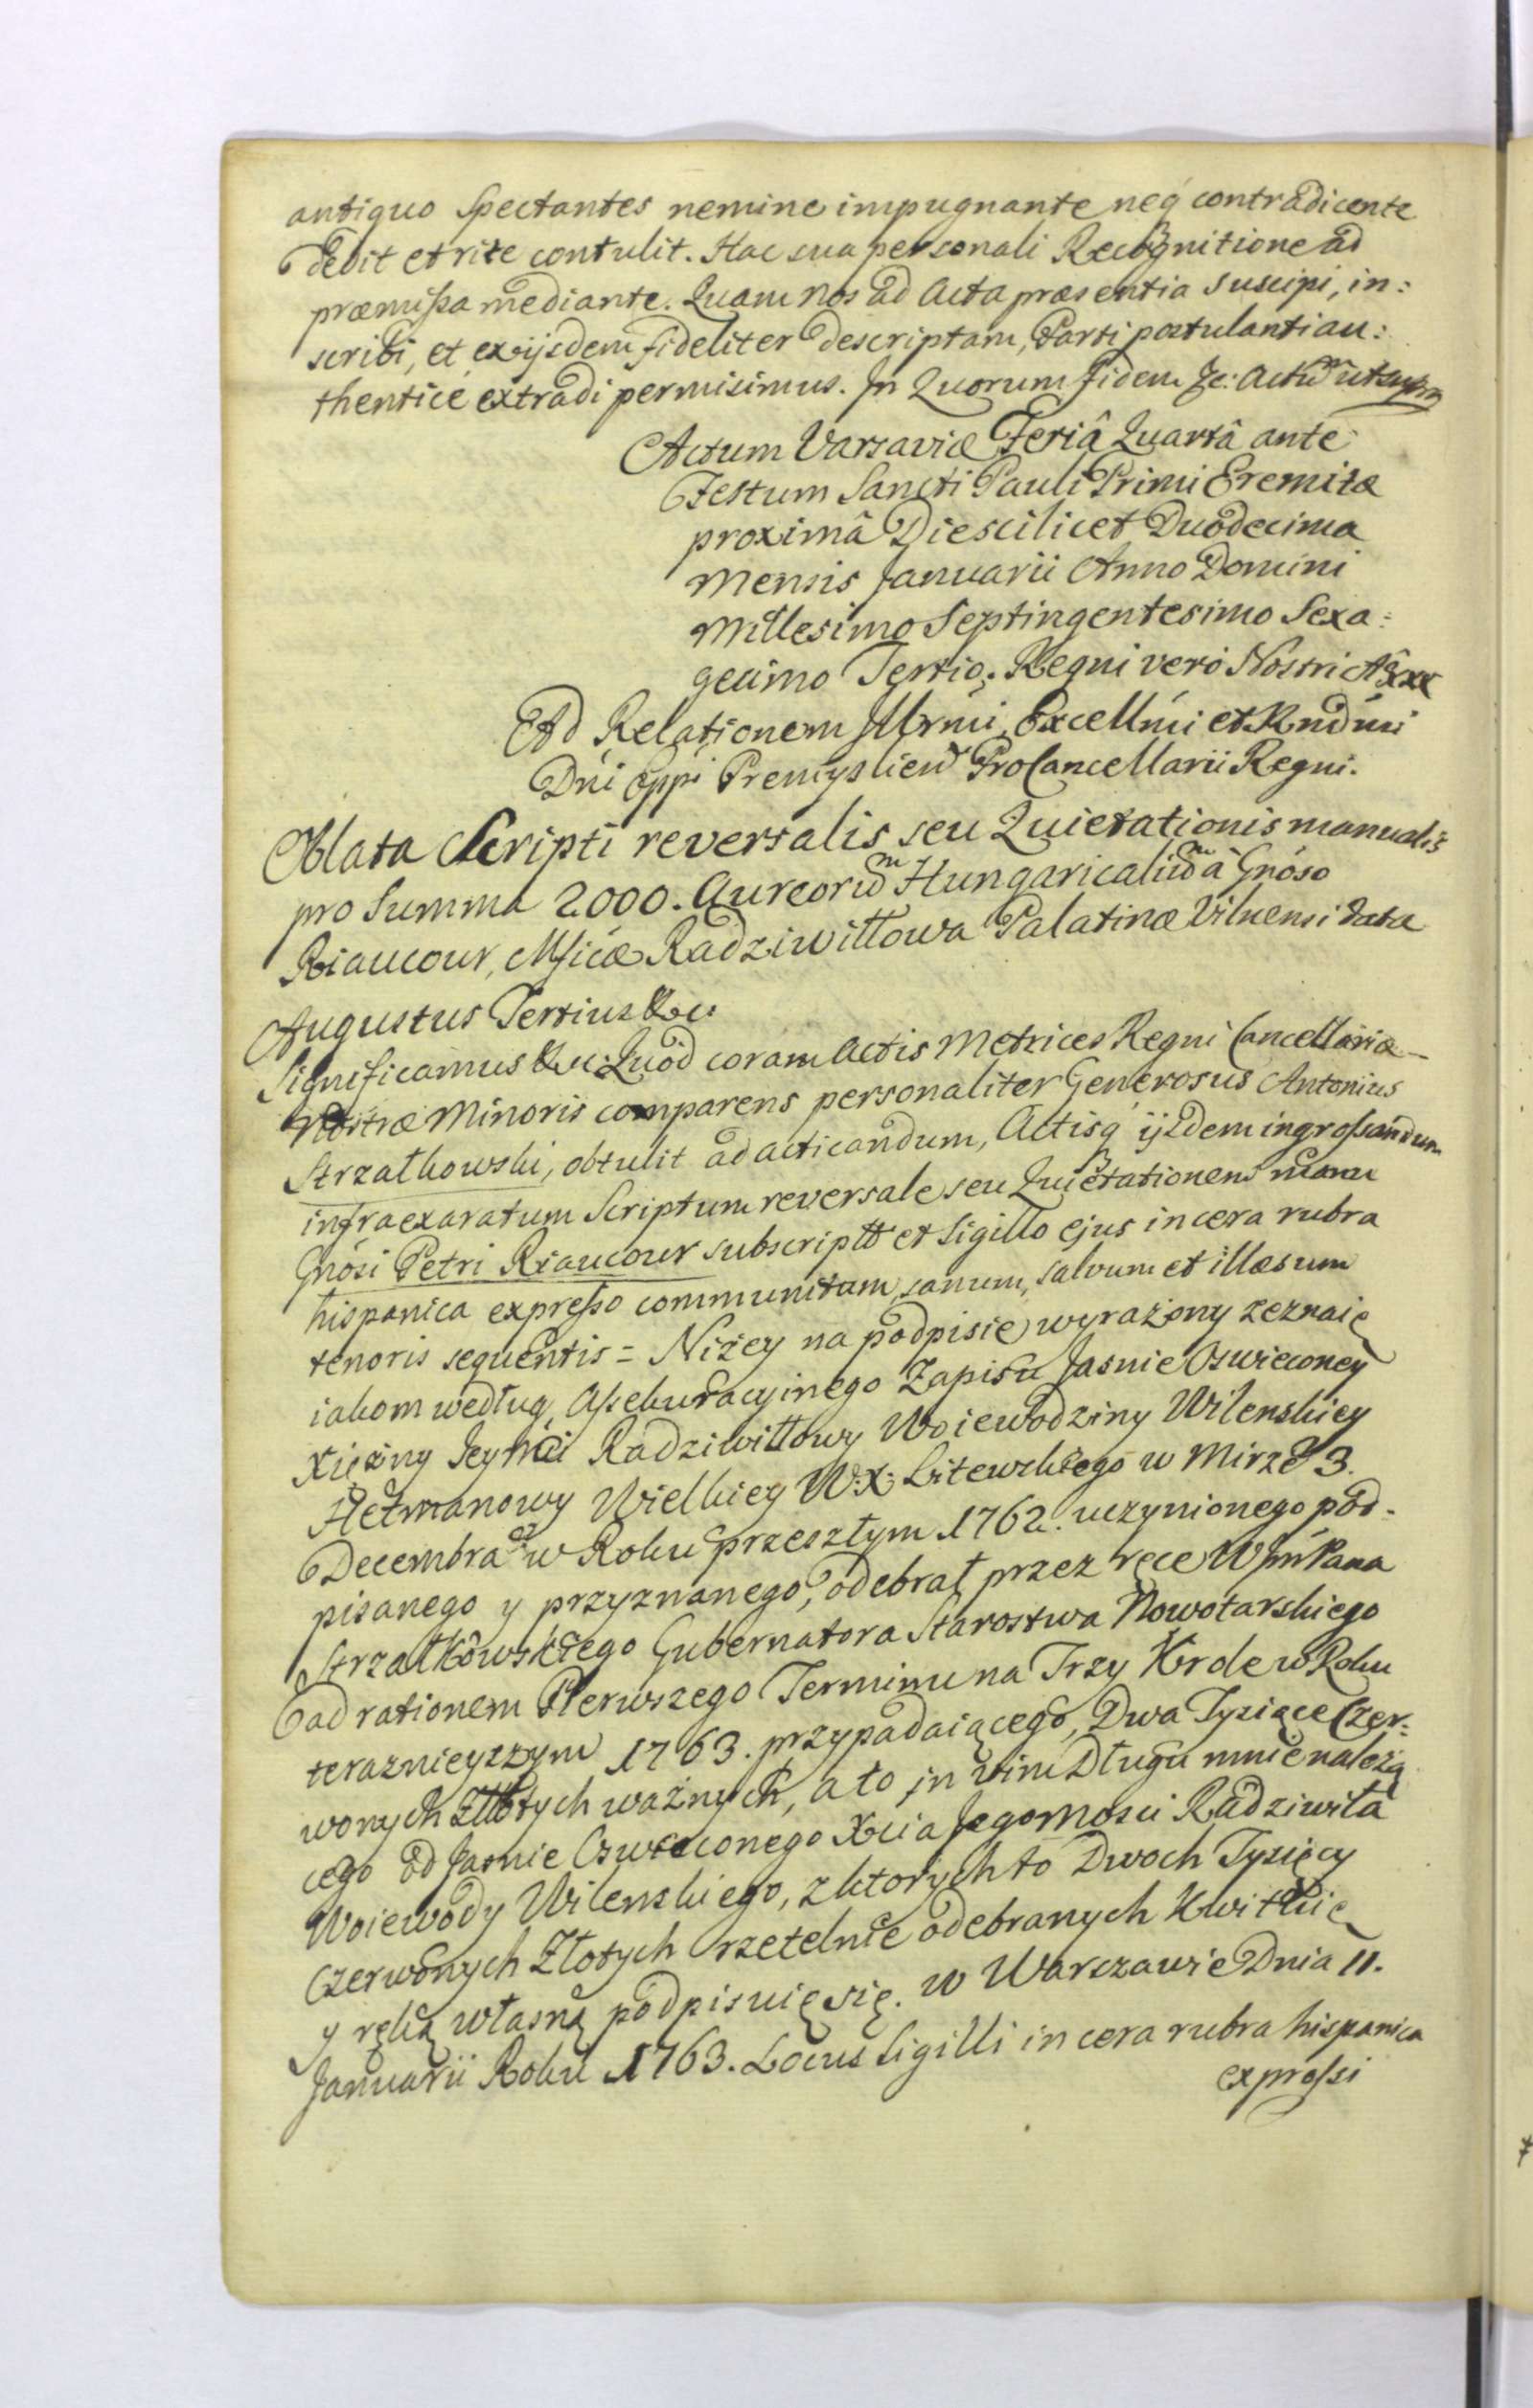 antiquo Spectantes nemine impugnante neq́ contradicente
dedit et rite contulit. Hac sua personali Recognitione ad
præmissa mediante. Quam nos ad Acta præsentia suscipi, in:
scribi, et ex ijsdem fideliter descriptam, Parti postulanti au:
thenticè extradi permisimus. In Quorum fidem &c: Actũ ut supra
Actum Varsaviæ Feriâ Quartâ ante
Festum Sancti Pauli Primi Eremitæ
proximâ Die scilicet Duodecima
Mensis Januarii Anno Domini
Millesimo Septingentesimo Sexa:
gesimo Tertio; Regni verò Nostri Aõ xxx
Ad Relationem Illrmi, Excellmi et Rndmi
Dni Eppi Premyslien̄ ProCancellarii Regni.
Oblata Scripti reversalis seu Quietationis manualis
pro Summa 2000. Aureorũ Hungaricaliũ à Gnoso
Riaucour, Mficæ Radziwiłłowa Palatinæ Vilnensi data
Augustus Tertius &c
Significamus &c: Quod coram Actis Metrices Regni Cancellariæ
Nostræ Minoris comparens personaliter Generosus Antonius
Strzałkowski, obtulit ad acticandum, Actisq́ ijsdem ingrossandum
infraexaratum Scriptum reversale seu Quietationem manu
Gnosi Petri Riaucour subscriptt et Sigillo ejus in cera rubra
hispanica expresso communitam, sanum, salvum et illæsum
tenoris sequentis = Niżey na podpisie wyrażony zeznaię
iakom według Assekuracyinego Zapisu Jasnie Oswieconey
Xiężny Jeymći Radziwiłłowy Woiewodziny Wilenskiey
Hetmanowy Wielkiey W: X: Litewskiego w Mirze 3.
Decembra w Roku przeszłym 1762. uczynionego pod-
pisanego y przyznanego, odebrał przez ręce WJm Pana
Strzałkowskiego Gubernatora Starostwa Nowotarskiego
ad rationem Pierwszego Terminu na Trzy Krole w Roku
teraznieyszym 1763. przypadaiącego, Dwa Tysiące Czer:
wonych Złłotych ważnych, a to in vim Długu mnie należą
cego od Jasnie Oswieconego Xcia Jegomosci Radziwiła
Woiewody Wilenskiego, z ktorych to Dwoch Tysięcy
Czerwonych Złotych rzetelnie odebranych Kwituię
y ręką własną podpisuię się. w Warszawie Dnia 11.
Januarii Roku 1763. Locus Sigilli in cera rubra hispanica
expressi